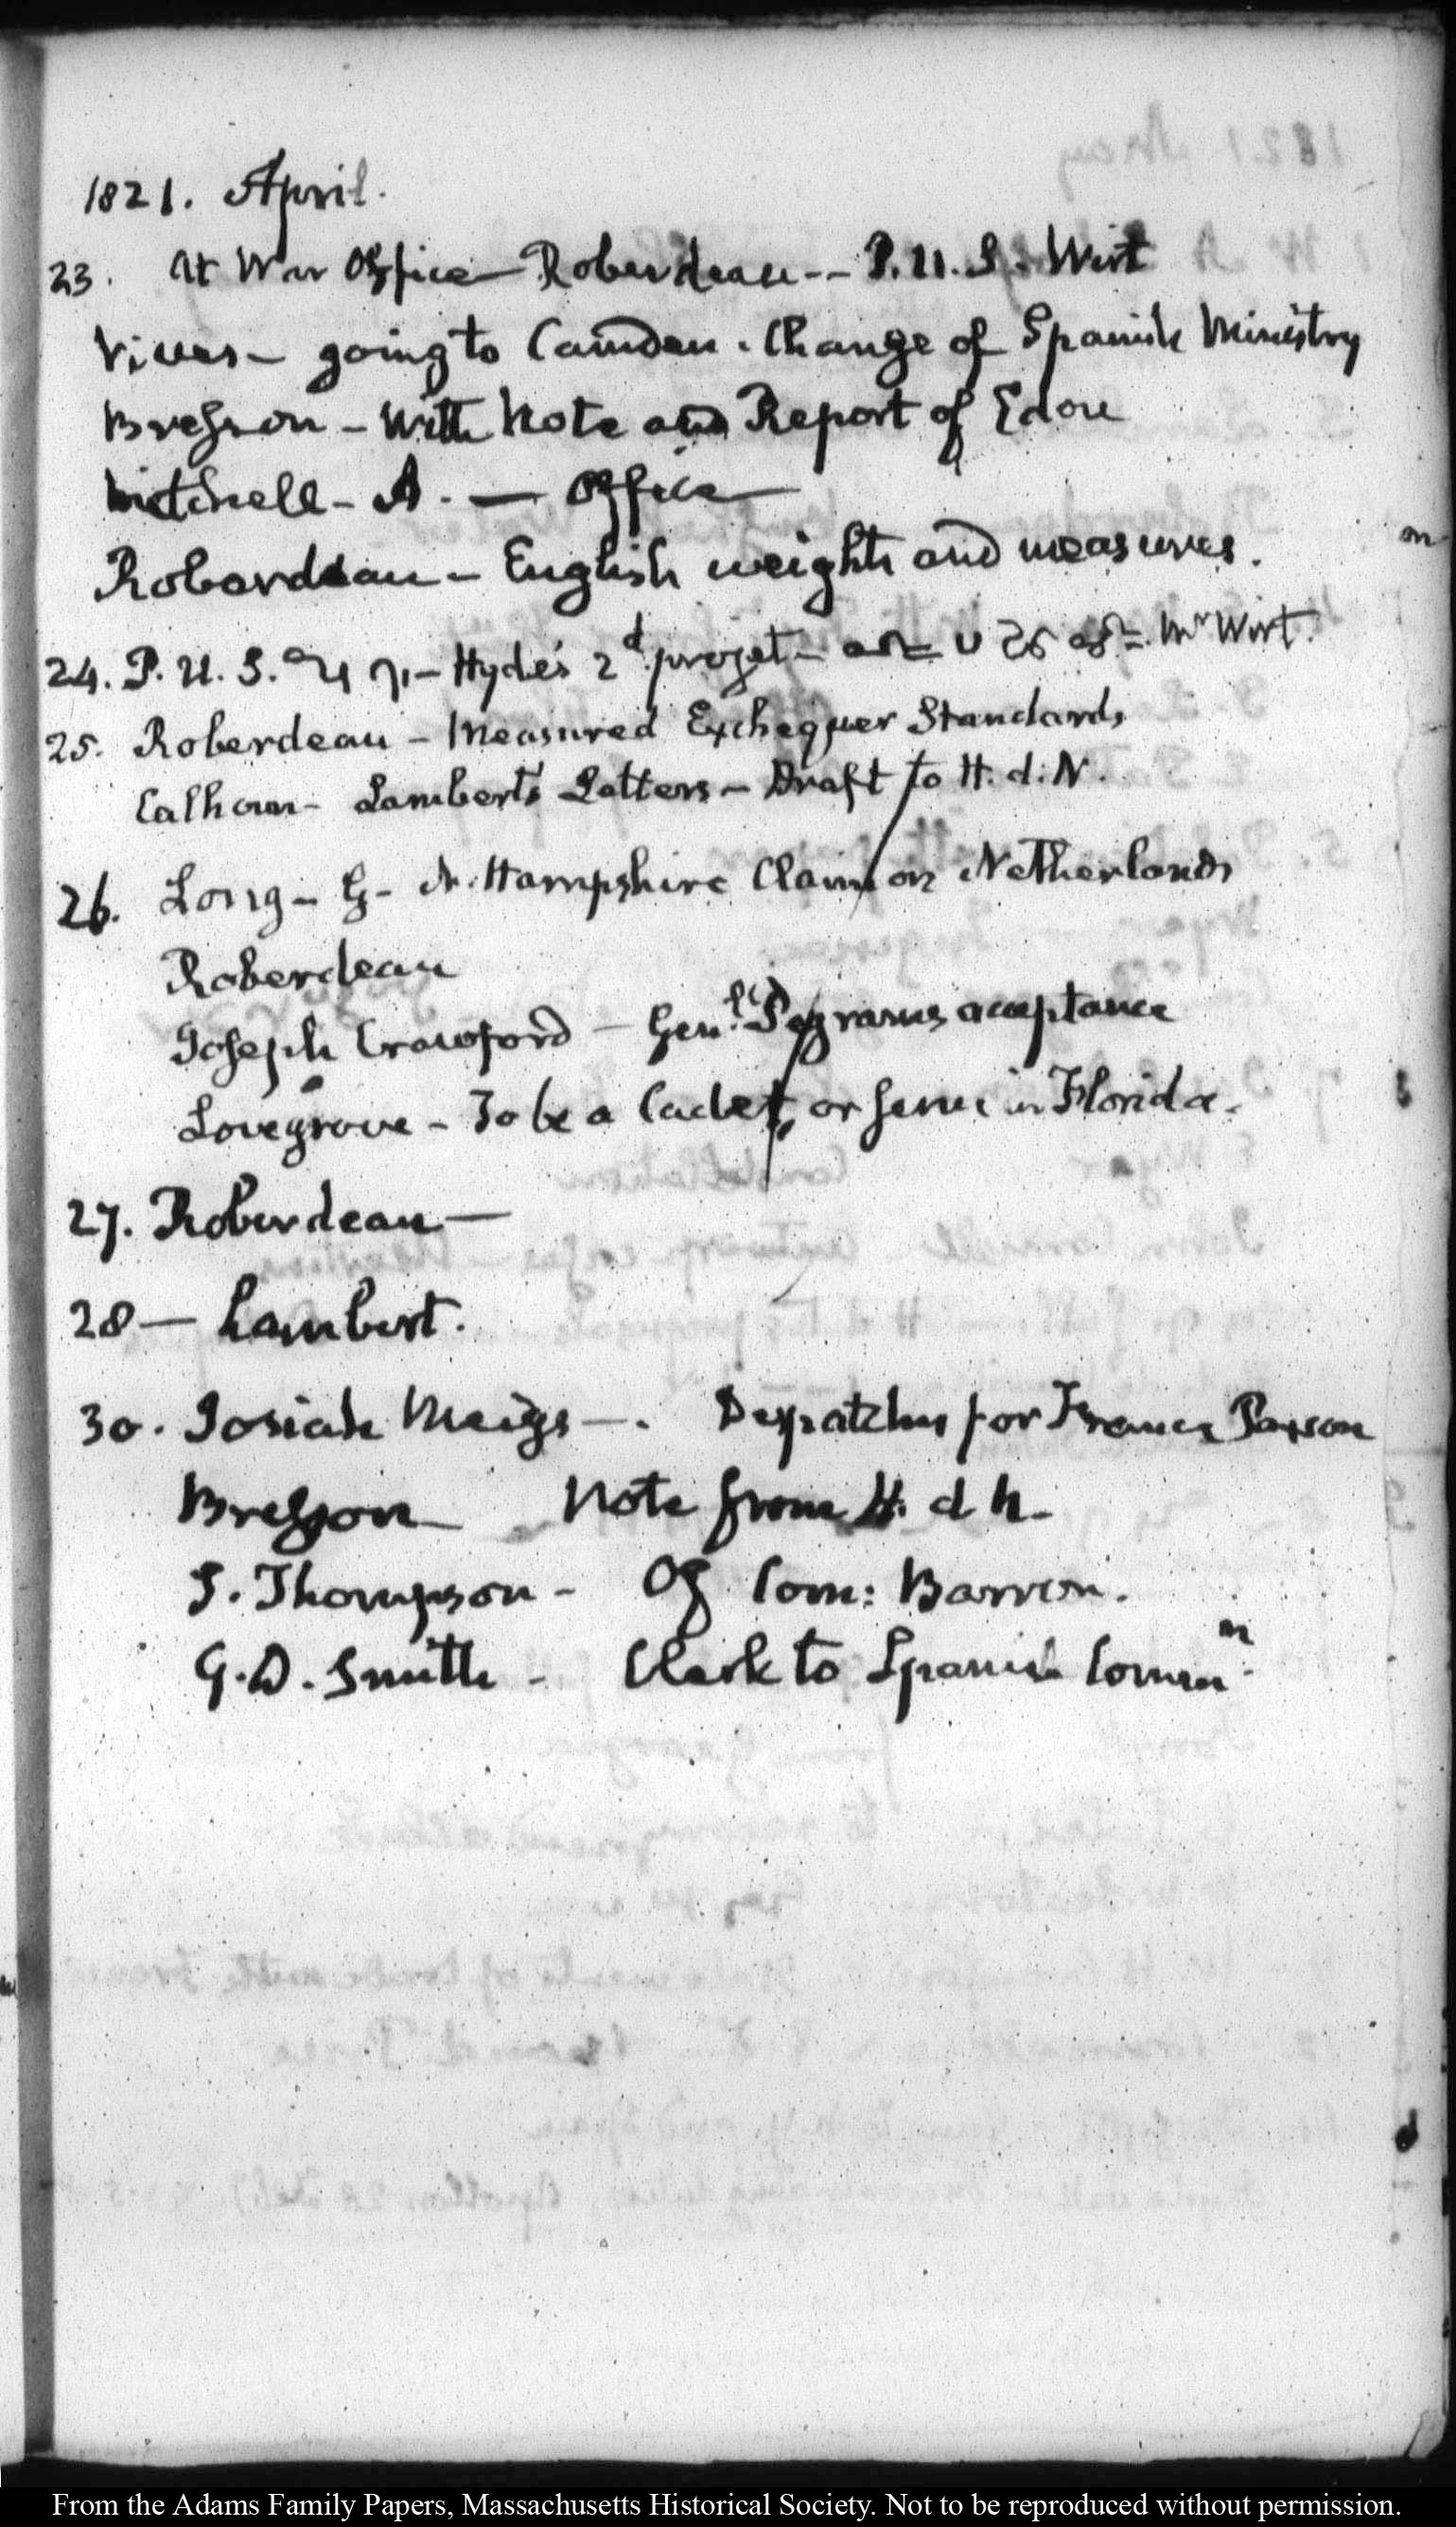 1821. April.
23. At War Office—Roberdeau-- P.U.S. Wirt
Vives— going to Camden. Change of Spanish Ministry
Bresson – With Note and Report of Edou
Mitchell – A. — Office
Roberdeau – English weights and measures.
24. P. U. S. – Hyde's 2d projet – Mr Wirt.
25. Roberdeau – Measured Exchequer Standards
Calhoun – Lambert's Letters – Draft to H. d. N.
26. Long – G– N. Hampshire Claim on Netherlands
Roberdeau
Joseph Crawford – Genl. Pegrams acceptance
Lovegrove – To be a Cadet, or serve in Florida.
27. Roberdeau —
28 — Lambert.
30. Josiah Meigs —. Despatches for France Paxson
Bresson Note from H. d N.
S. Thompson – Of Com: Barron.
G. D. Smith – Clerk to Spanish Commn
From the Adams Family Papers, Massachusetts Historical Society. Not to be reproduced without permission.